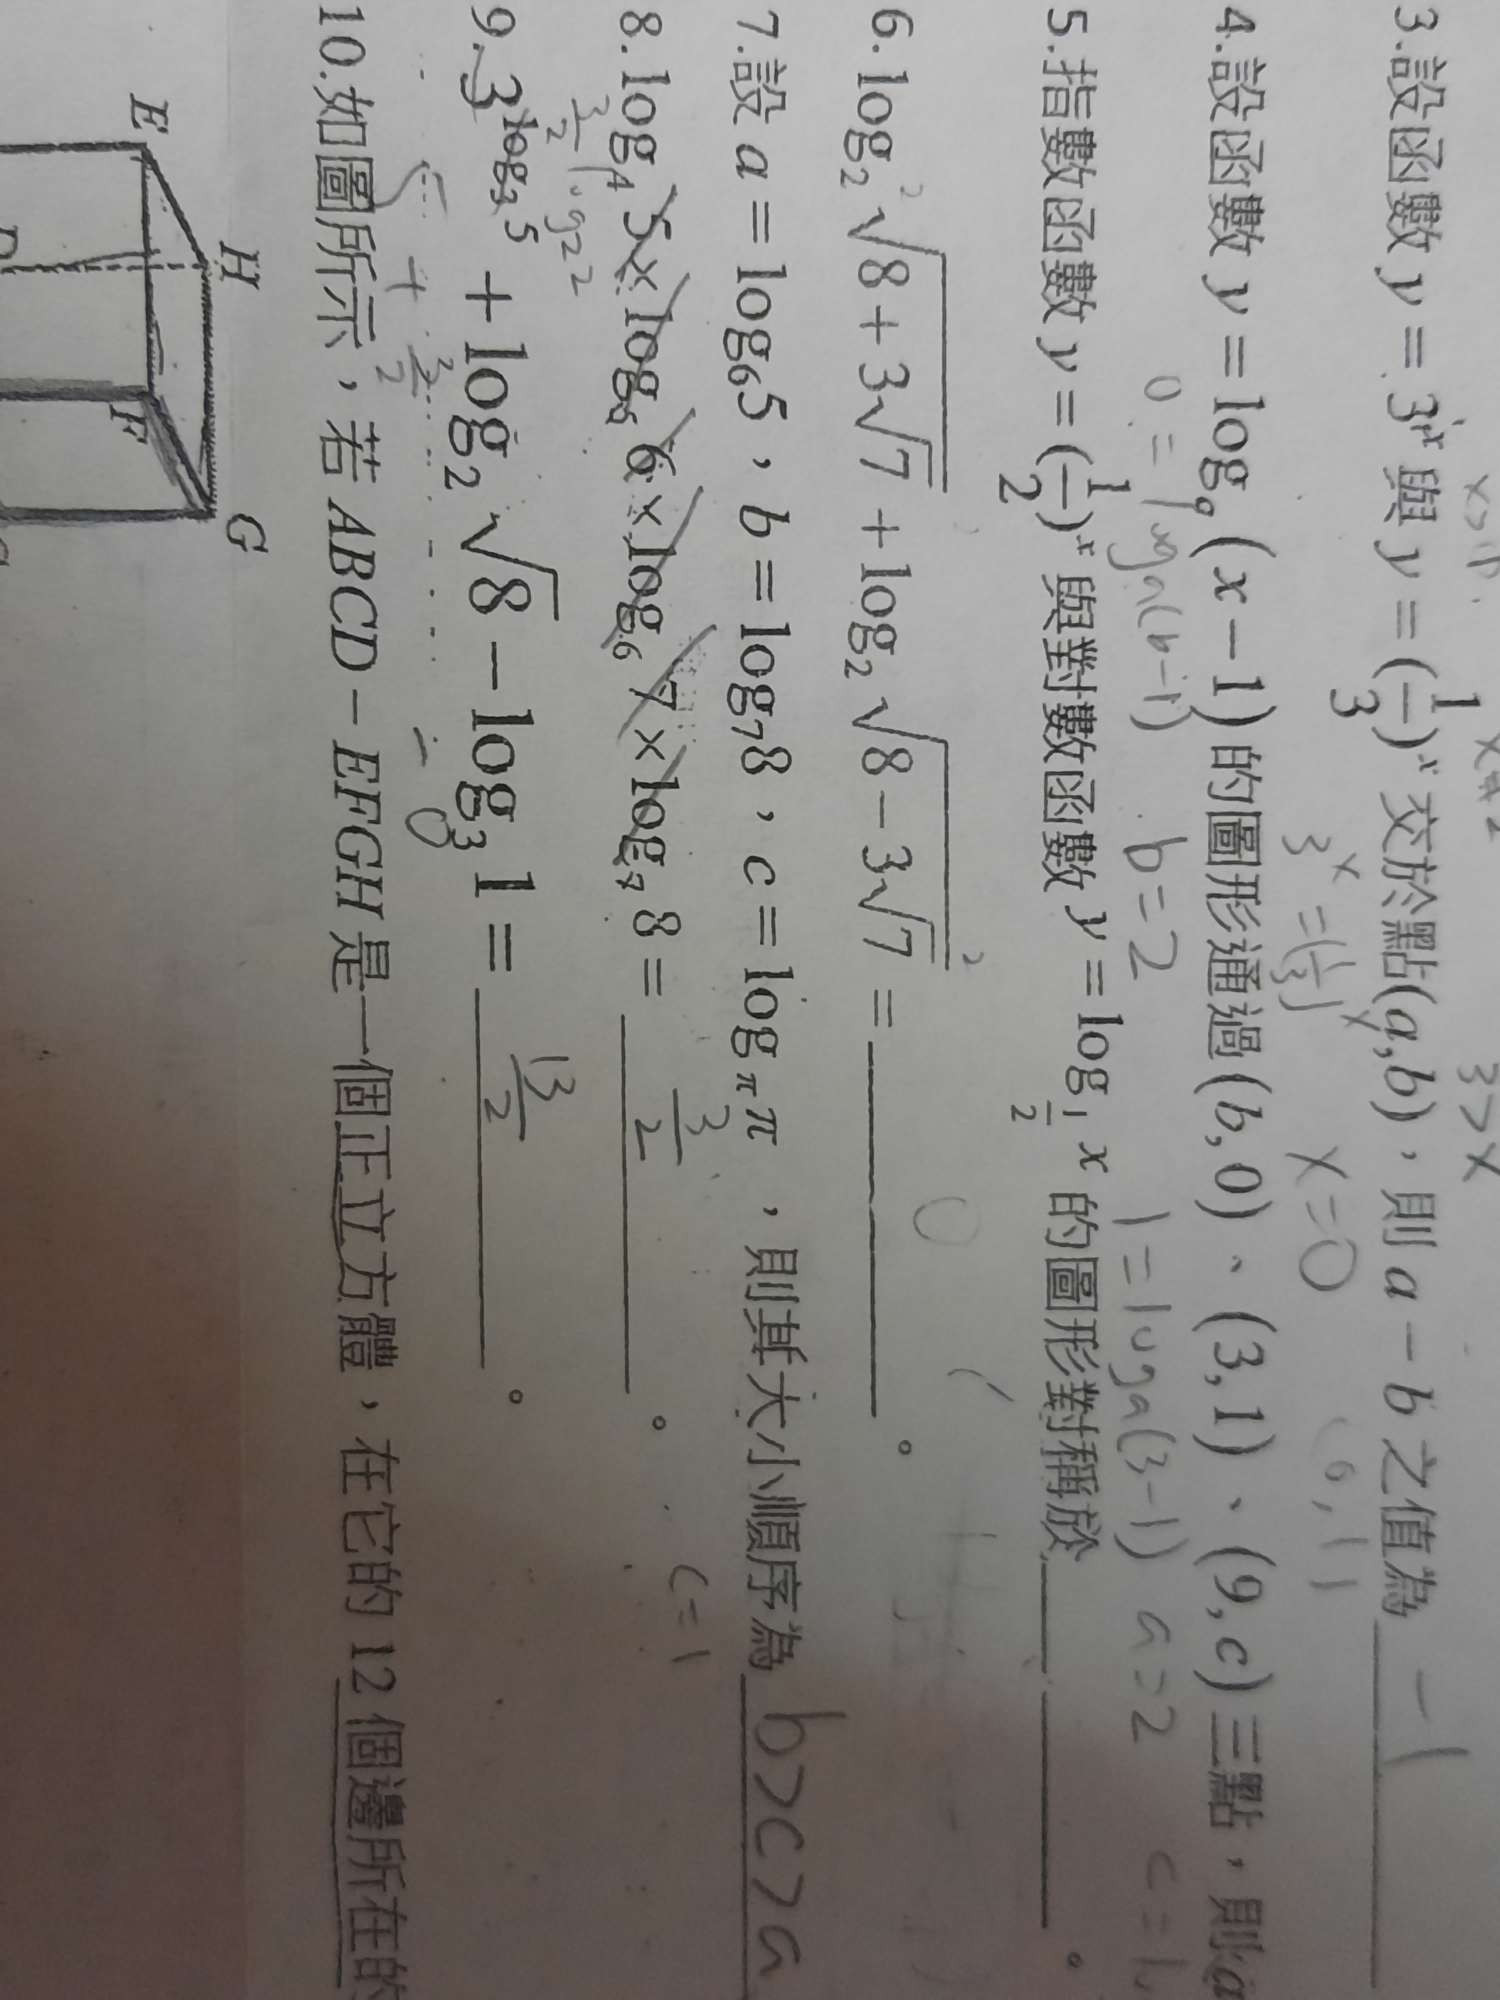 x>1, x≠2 3>x
3.設函數 y = 3ˣ 與 y = (1/3)ˣ 交於點(a,b)，則 a − b 之值為 −1
3ˣ = (1/3)ˣ x=0 (0,1)
4.設函數 y = logₐ(x−1) 的圖形通過 (b,0)、(3,1)、(9,c) 三點，則 a
0 = loga(b−1) b=2 1 = loga(3−1) a=2 c=
5.指數函數 y = (1/2)ˣ 與對數函數 y = log_{1/2} x 的圖形對稱於 ______。
6.log₂√(8+3√7) + log₂√(8−3√7) = ______。
0
7.設 a = log₆5，b = log₇8，c = log_π π，則其大小順序為 b>c>a
c=1
8.log₄5×log₅6×log₆7×log₇8 = 3/2 。
3/2 log₂2
9.3^{log₃5} + log₂√8 − log₃1 = 13/2 。
5 + 3/2 − 0
10.如圖所示，若 ABCD − EFGH 是一個正立方體，在它的 12 個邊所在的
H
G
E
F
D